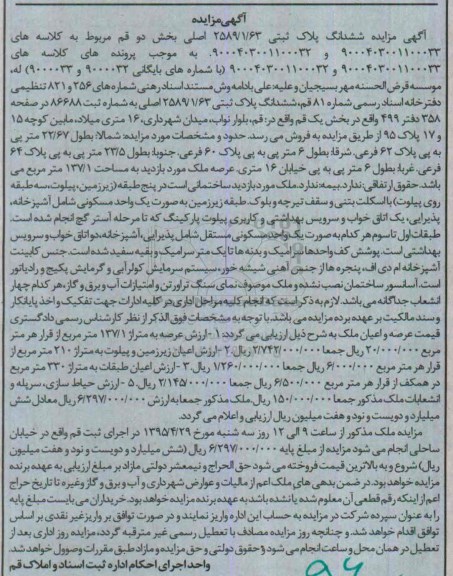 آگهی مزایده
آگهی مزایده ششدانگ پلاک ثبتی ۲۵۸۹/۱/۶۳ اصلی بخش دو قم مربوط به کلاسه های
۹۰۰۰۴۰۳۰۰۱۱۰۰۰۳۳ و ۹۰۰۰۴۰۳۰۰۱۱۰۰۰۳۲. به موجب پرونده های کلاسه های
۹۰۰۰۴۰۳۰۰۱۱۰۰۰۳۳ و ۹۰۰۰۴۰۳۰۰۱۱۰۰۰۳۲ (با شماره های بایگانی ۹۰۰۰۰۳۲ و ۹۰۰۰۰۳۳) له،
موسسه قرض الحسنه مهر بسیجیان و علیه: علی بادامه وش مستند اسناد رهنی شماره های ۲۵۶ و ۸۲۱ تنظیمی
دفترخانه اسناد رسمی شماره ۸۱ قم، ششدانگ پلاک ثبتی ۲۵۸۹/۱/۶۳ اصلی به شماره ثبت ۸۶۶۸۸ در صفحه
۳۵۸ دفتر ۴۹۹ واقع در بخش یک قم واقع در: قم، بلوار نواب، میدان شهرداری، ۱۶ متری میلاد، مابین کوچه ۱۵
و ۱۷ پلاک ۹۵ از طریق مزایده به فروش می رسد. حدود و مشخصات مورد مزایده: شمالا: بطول ۲۲/۶۷ متر پی
به پی پلاک ۶۲ فرعی. شرقا: بطول ۶ متر پی به پی پلاک ۶۰ فرعی. جنوبا: بطول ۲۳/۵ متر پی به پی پلاک ۶۴
فرعی. غربا: بطول ۶ متر پی به پی خیابان ۱۶ متری. عرصه ملک مورد بازدید به مساحت ۱۳۷/۱ متر مربع می
باشد. حقوق ارتفاقی: ندارد. بیمه: ندارد. ملک مورد بازدید ساختمانی است در پنج طبقه (زیرزمین، پیلوت، سه طبقه
روی پیلوت) با اسکلت بتنی و سقف تیرچه و بلوک. طبقه زیرزمین به صورت یک واحد مسکونی شامل آشپزخانه،
پذیرایی، یک اتاق خواب و سرویس بهداشتی و کاربری پیلوت پارکینگ که تا مرحله آستر گچ انجام شده است.
طبقات اول تا سوم هر کدام به صورت یک واحد مسکونی مستقل شامل پذیرایی، آشپزخانه، دو اتاق خواب و سرویس
بهداشتی است. پوشش کف واحدها سرامیک و بدنه ها تا یک متر سرامیک و بقیه سفید شده است. جنس کابینت
آشپزخانه ام دی اف، پنجره ها از جنس آهنی شیشه خور، سیستم سرمایش کولر آبی و گرمایش پکیج و رادیاتور
است. آسانسور ساختمان نصب نشده و ملک موصوف نمای سنگ تراورتن و امتیازات آب و برق و گاز، هر کدام چهار
انشعاب جداگانه می باشد. لازم به ذکر است که انجام کلیه مراحل اداری در کلیه ادارات جهت تفکیک و اخذ پایانکار
و سند مالکیت بر عهده برنده مزایده می باشد. با توجه به مشخصات فوق الذکر از نظر کارشناس رسمی دادگستری
قیمت عرصه و اعیان ملک به شرح ذیل ارزیابی می گردد: ۱- ارزش عرصه به متراژ ۱۳۷/۱ متر مربع از قرار هر متر
مربع ۲۰/۰۰۰/۰۰۰ ریال جمعا ۲/۷۴۲/۰۰۰/۰۰۰ ریال. ۲- ارزش اعیان زیرزمین و پیلوت به متراژ ۲۱۰ متر مربع از
قرار هر متر مربع ۶/۰۰۰/۰۰۰ ریال جمعا ۱/۲۶۰/۰۰۰/۰۰۰ ریال. ۳- ارزش اعیان طبقات به متراژ ۳۳۰ متر مربع
در همکف از قرار هر متر مربع ۶/۵۰۰/۰۰۰ ریال جمعا ۲/۱۴۵/۰۰۰/۰۰۰ ریال. ۵- ارزش حیاط سازی، سرپله و
انشعابات ملک مذکور جمعا ۱۵۰/۰۰۰/۰۰۰ ریال. ملک مذکور جمعا به ارزش ۶/۲۹۷/۰۰۰/۰۰۰ ریال معادل شش
میلیارد و دویست و نود و هفت میلیون ریال ارزیابی و اعلام می گردد.
مزایده ملک مذکور از ساعت ۹ الی ۱۲ روز سه شنبه مورخ ۱۳۹۵/۴/۲۹ در اجرای ثبت قم واقع در خیابان
ساحلی انجام می شود مزایده از مبلغ پایه ۶/۲۹۷/۰۰۰/۰۰۰ ریال (شش میلیارد و دویست و نود و هفت میلیون
ریال) شروع و به بالاترین قیمت فروخته می شود حق الحراج و نیمعشر دولتی مازاد بر مبلغ ارزیابی به عهده برنده
مزایده خواهد بود. در ضمن بدهی های ملک اعم از مالیات و عوارض شهرداری و آب و برق و گاز و غیره تا تاریخ حراج
اعم از اینکه رقم قطعی آن معلوم شده یا نشده باشد به عهده برنده مزایده خواهد بود. خریداران می بایست مبلغ پایه
را به عنوان سپرده شرکت در مزایده به حساب این اداره واریز نمایند و در صورت توافق بر واریز غیر نقدی بر اساس
توافق اقدام خواهد شد. و چنانچه روز مزایده مصادف با تعطیل رسمی غیر مترقبه گردد، مزایده روز اداری بعد از
تعطیل در همان محل و ساعت انجام می شود و حقوق دولتی و حق مزایده و مازاد طبق مقررات وصول خواهد شد.
واحد اجرای احکام اداره ثبت اسناد و املاک قم